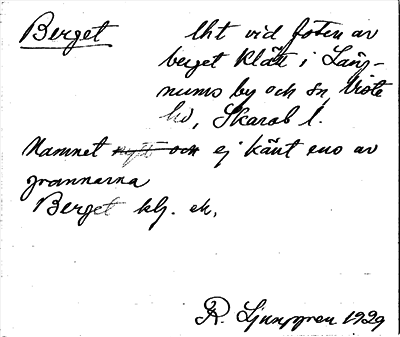 Berget lht vid foten av
berget Klätt i Lång-
nums by och sn, Viste
hd, Skarab. l.
Namnet nytt och ej känt ens av
grannarna
Berget klg. ek.
R. Ljunggren 1929